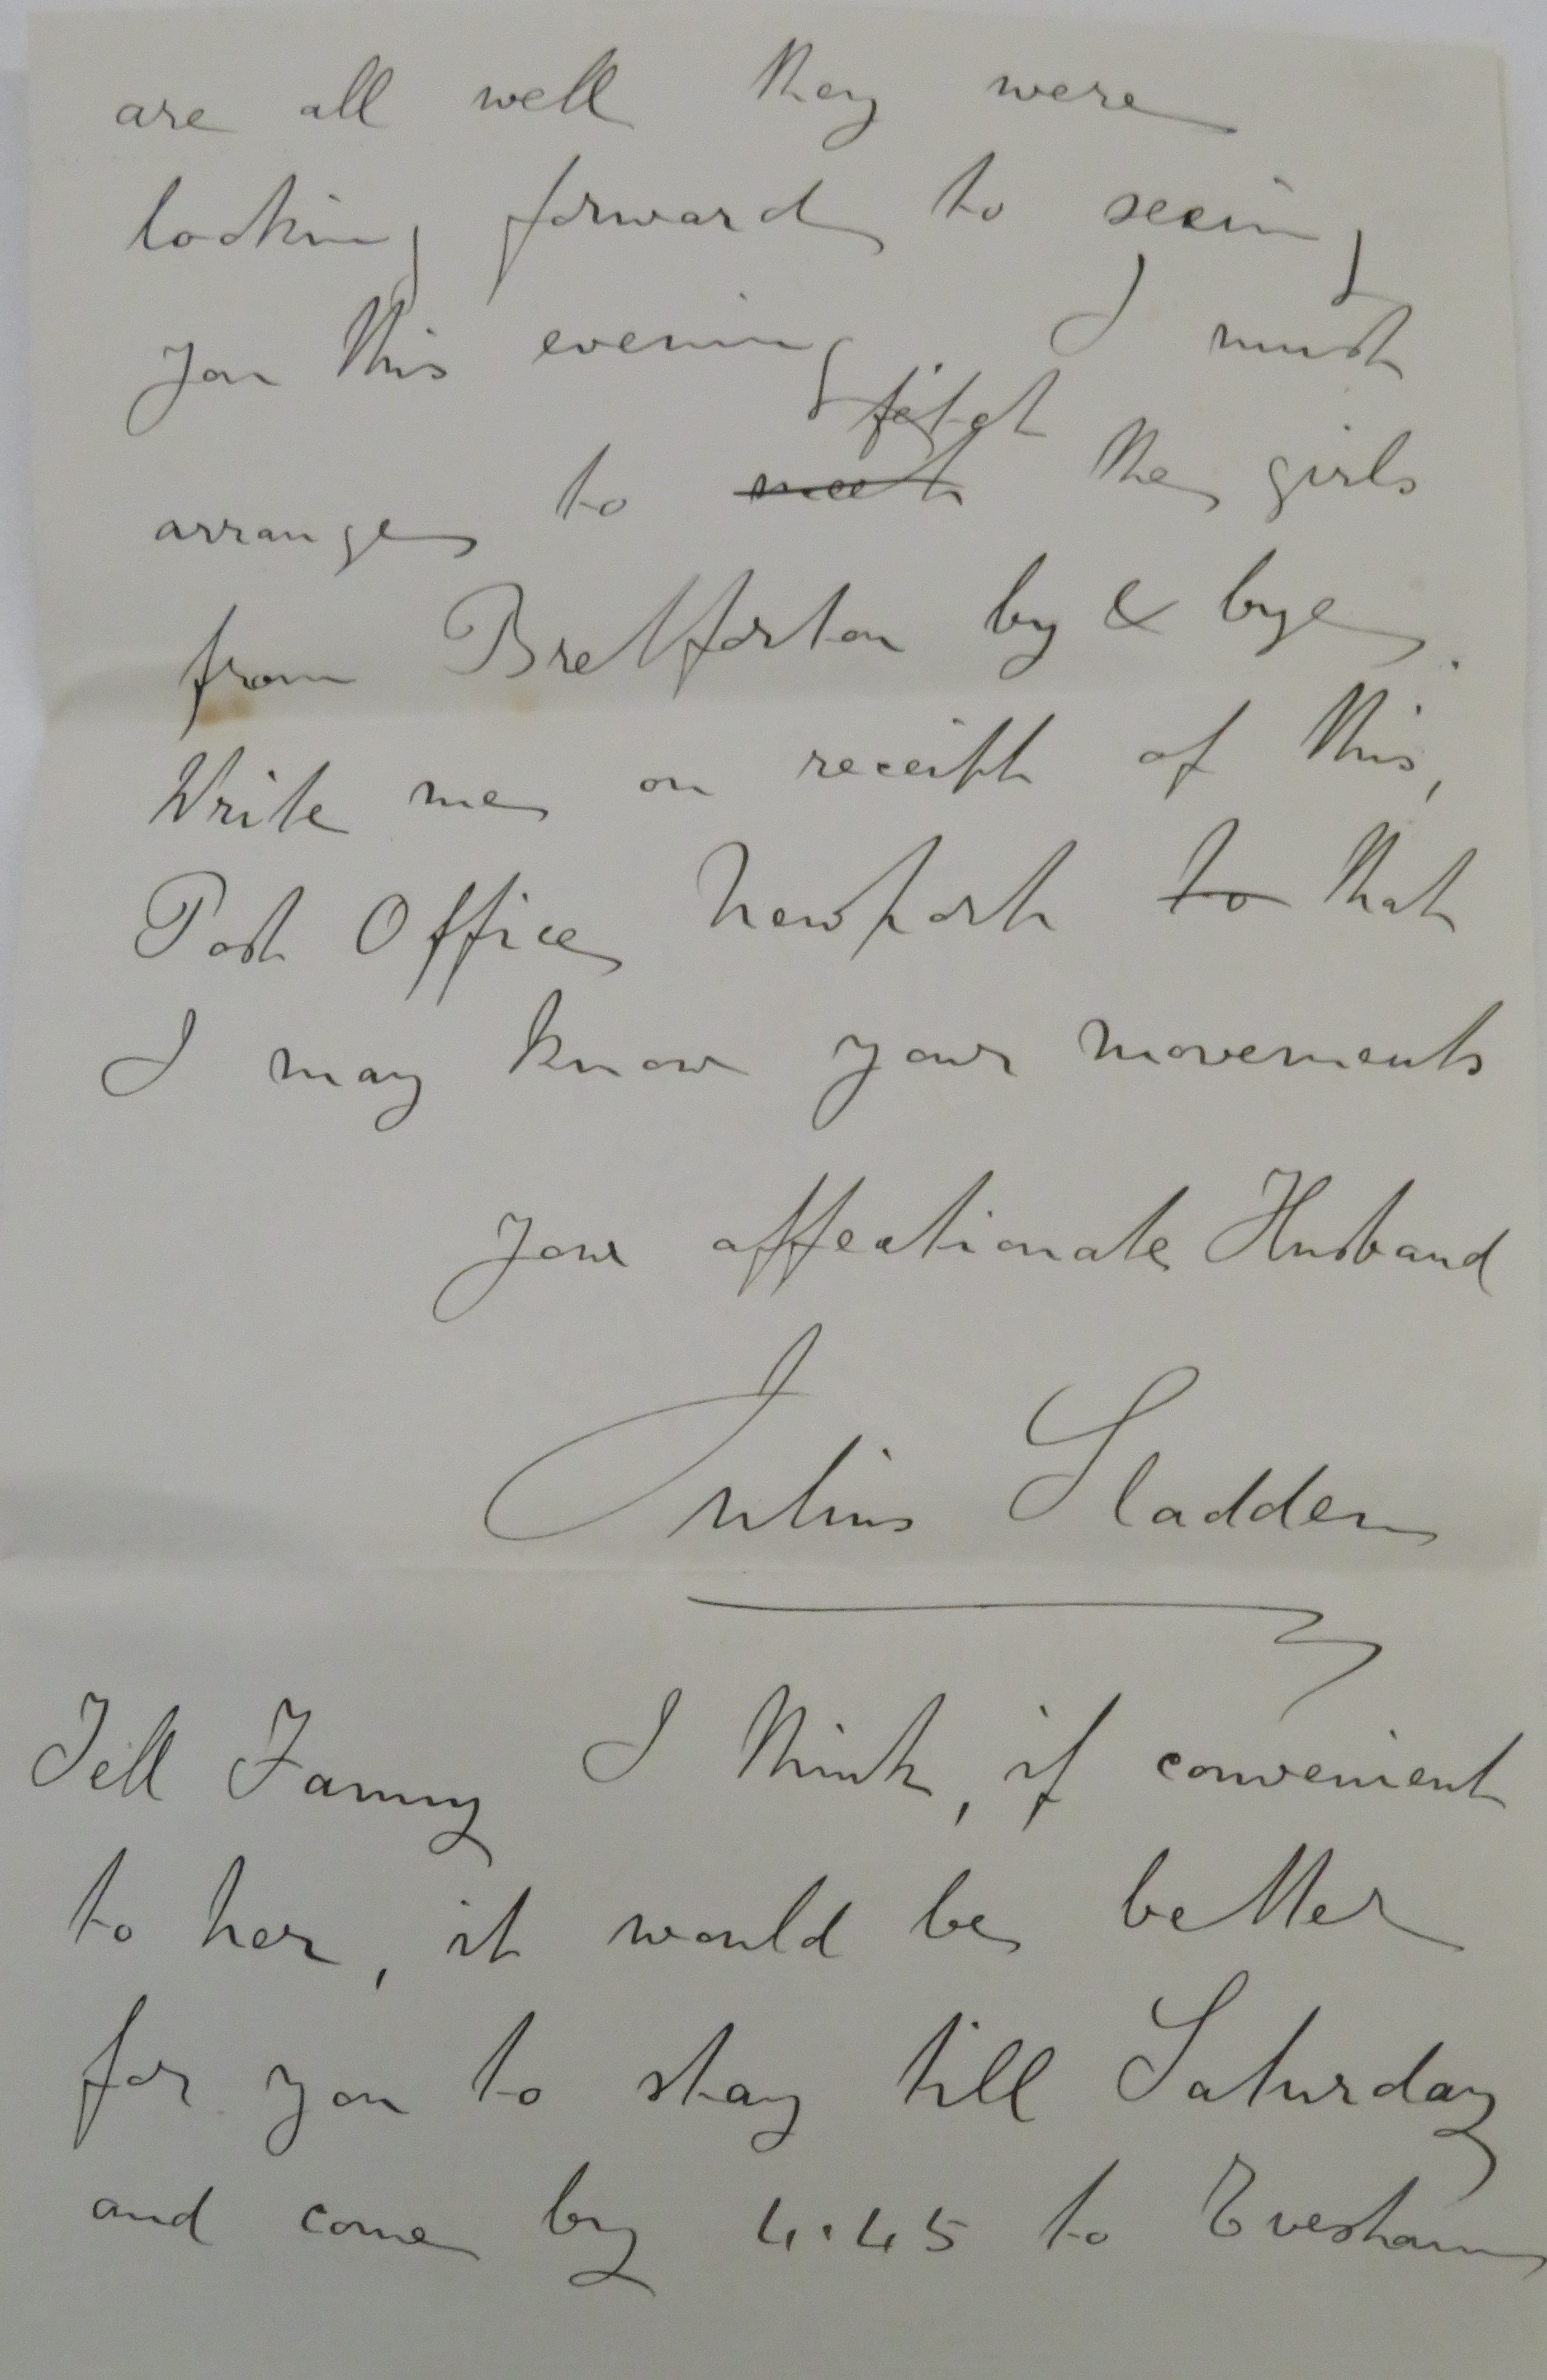 are all well they were
looking forward to seeing
you this evening I must
arrange to ~~meet~~ the girls
from Bretforton by & bye.
Write me on receipt of this,
Post Office Newport ~~to~~ that
I may know your movements
Your affectionate Husband
Julius Sladden
Tell Fanny I think, if convenient
to her, it would be better
for you to stay till Saturday
and come by 4.45 to Evesham